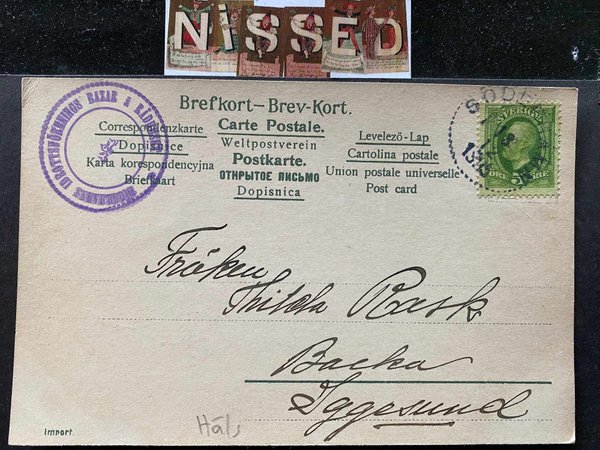 NiSSED
IDROTTSFÖRENINGS BAZAR
Brefkort–Brev-Kort.
Correspondenzkarte Carte Postale. Levelező-Lap
Dopisnice Weltpostverein Cartolina postale
Karta korespondencyjna Postkarte. Union postale universelle
Briefkaart ОТКРЫТОЕ ПИСЬМО Post card
Dopisnica
SVERIGE
ÖRE 5 ÖRE
Fröken
Hilda Rask
Backa
Iggesund
Import.